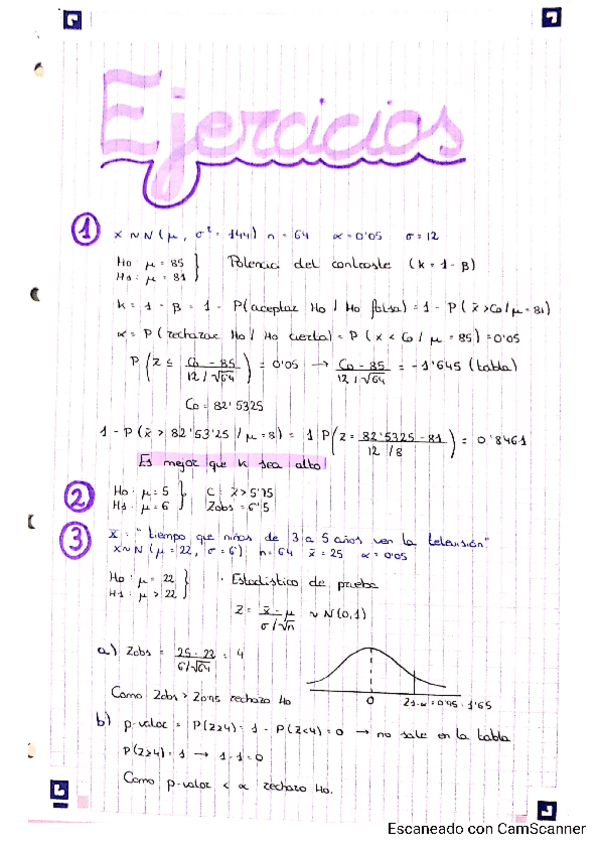 Ejercicios
1 X ~ N(μ, σ² = 144) n = 64 α = 0'05 σ = 12
H0: μ = 85 } Potencia del contraste (k = 1 - β)
H1: μ = 81
k = 1 - β = 1 - P(aceptar H0 / H0 falsa) = 1 - P(x̄ > C0 / μ = 81)
α = P(rechazar H0 / H0 cierta) = P(x < C0 / μ = 85) = 0'05
P(Z ≤ (C0 - 85)/(12/√64)) = 0'05 → (C0 - 85)/(12/√64) = -1'645 (tabla)
C0 = 82'5325
1 - P(x̄ > 82'53'25 / μ = 8) = 1 P(Z = (82'5325 - 81)/(12/8)) = 0'8461
Es mejor que k sea alto
2 H0: μ = 5 } C x̄ > 5'75
H1: μ = 6 Zobs = 6'5
3 X: "tiempo que niños de 3 a 5 años ven la televisión"
X ~ N(μ = 22, σ = 6) n = 64 x̄ = 25 α = 0'05
H0: μ = 22 } · Estadístico de prueba
H1: μ > 22
Z = (x̄ - μ)/(σ/√n) ~ N(0,1)
a) Zobs = (25 - 22)/(6/√64) = 4
Como Zobs > Z0'95 rechazo H0
0 Z1-α = 0'95 = 1'65
b) p-valor = P(Z≥4) = 1 - P(Z<4) = 0 → no sale en la tabla
P(Z≥4) = 1 → 1-1 = 0
Como p-valor < α rechazo H0.
Escaneado con CamScanner